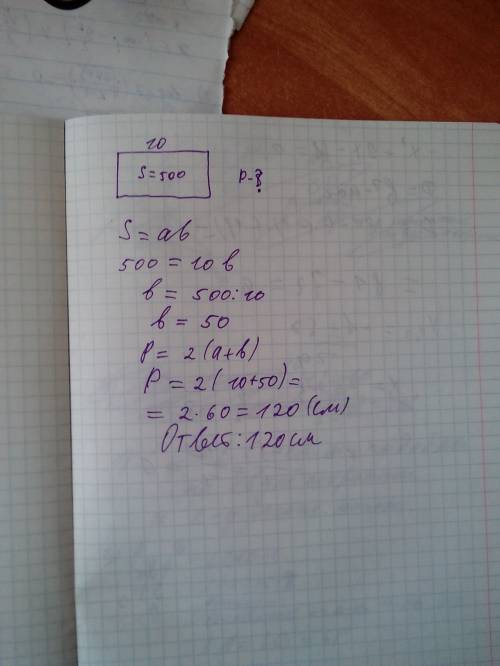 10
S=500 P-?
S = ab
500 = 10 b
b = 500:10
b = 50
P = 2 (a+b)
P = 2 ( 10+50) =
= 2·60 = 120 (см)
Ответ: 120 см